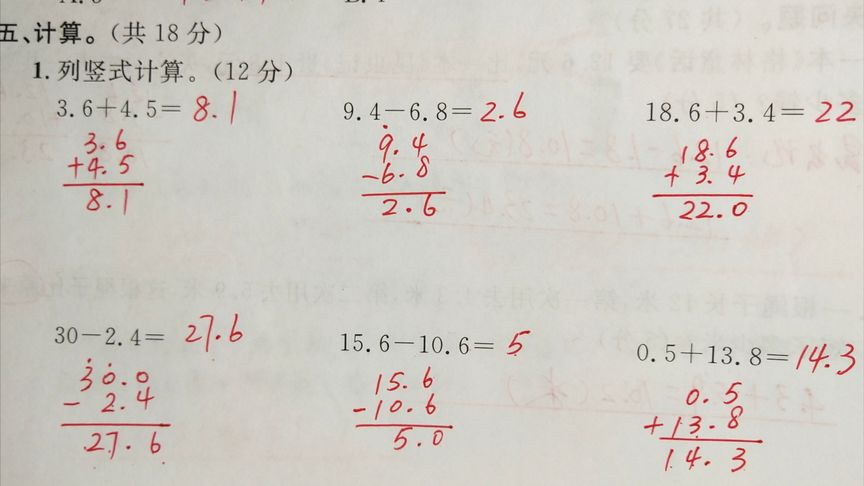 五、计算。(共 18 分)
1. 列竖式计算。(12 分)
3.6+4.5= 8.1
3.6
+4.5
8.1
9.4-6.8= 2.6
9.4
-6.8
2.6
18.6+3.4= 22
18.6
+3.4
22.0
30-2.4= 27.6
30.0
-2.4
27.6
15.6-10.6= 5
15.6
-10.6
5.0
0.5+13.8= 14.3
0.5
+13.8
14.3